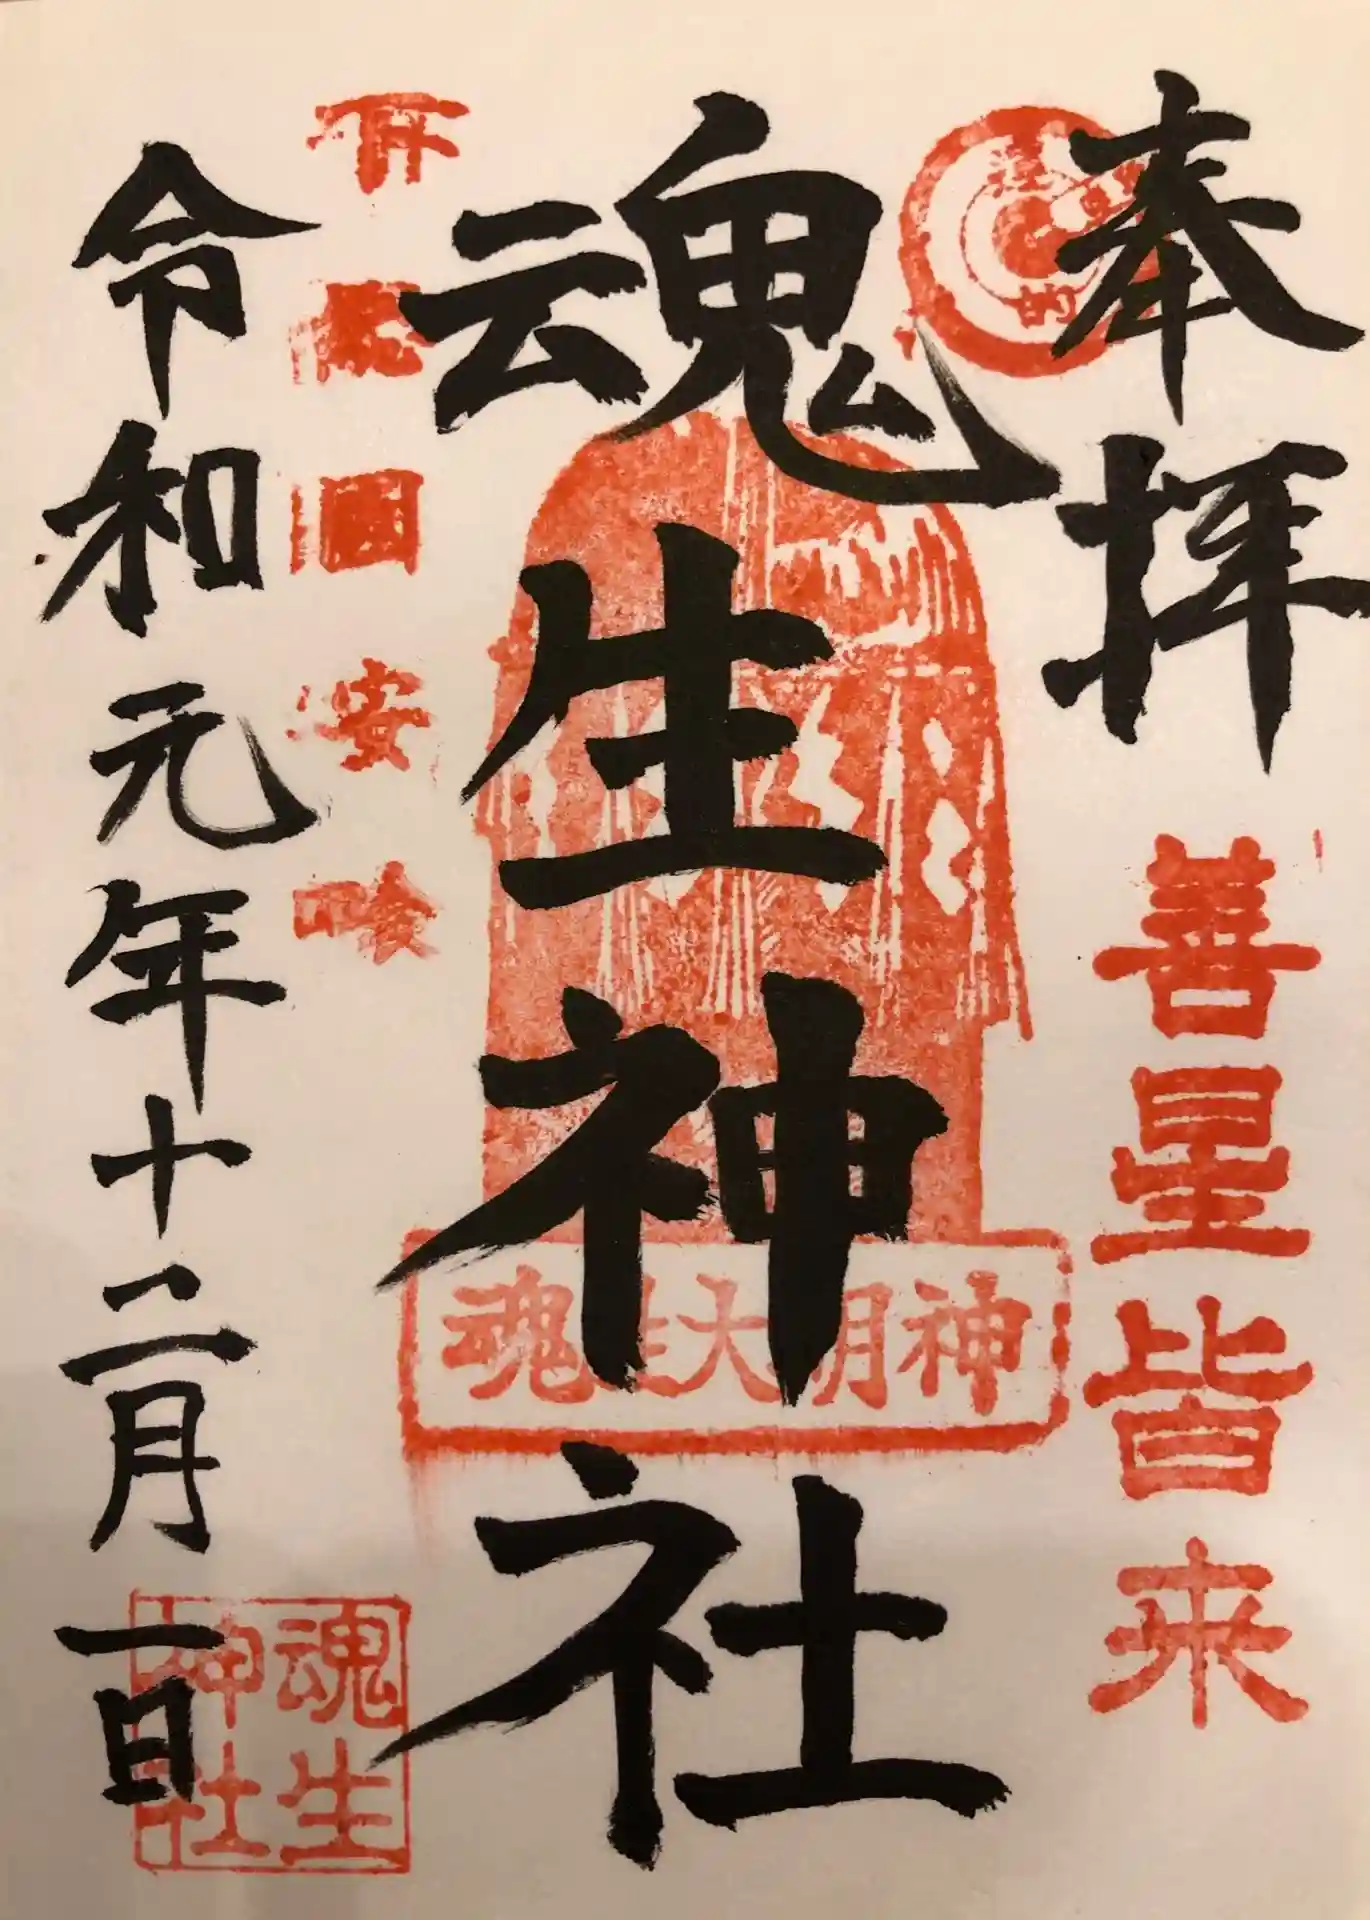 奉拝
善星皆来
魂生神社
魂生大明神
令和元年十二月一日
魂生
神社